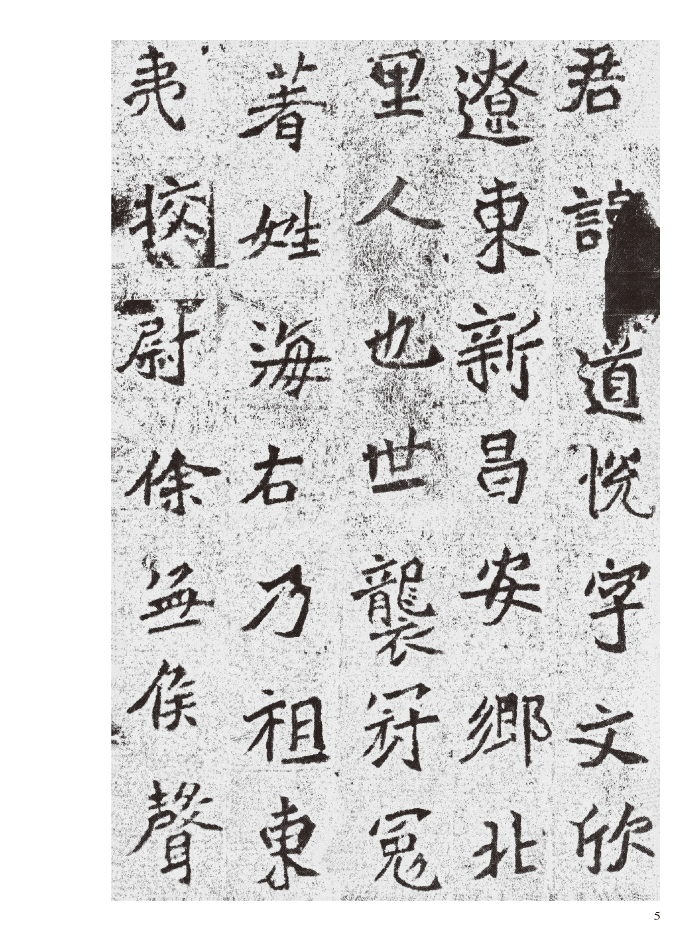 君諱道悅字文欣
遼東新昌安鄉北
里人也世襲冠冕
著姓海右乃祖東
夷挍尉徐無侯聲
5